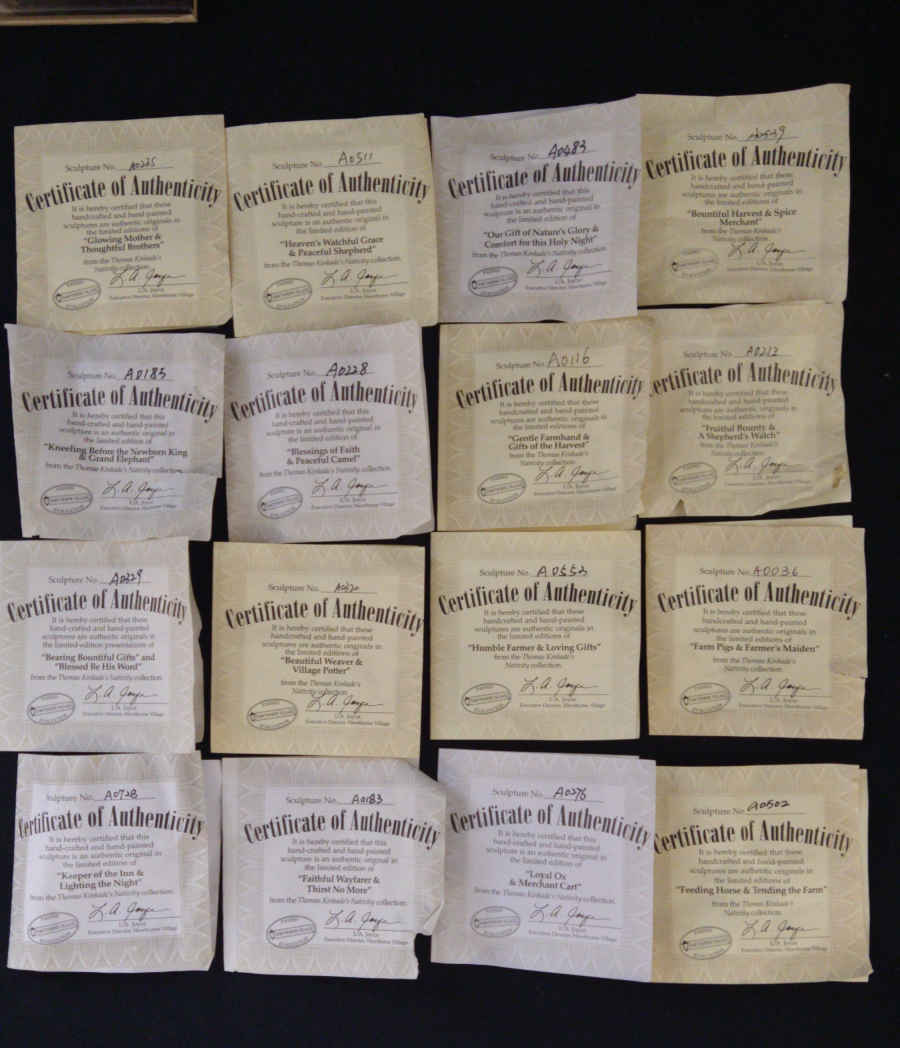 Sculpture No. A0225
Certificate of Authenticity
It is hereby certified that these
handcrafted and hand-painted
sculptures are authentic originals in
the limited editions of
"Glowing Mother &
Thoughtful Brothers"
from the Thomas Kinkade's
Nativity collection.
L.A. Joyce
L.A. Joyce
Executive Director, Hawthorne Village
Sculpture No. A0511
Certificate of Authenticity
It is hereby certified that this
hand-crafted and hand-painted
sculpture is an authentic original in
the limited edition of
"Heaven's Watchful Grace
& Peaceful Shepherd"
from the Thomas Kinkade's Nativity collection.
L.A. Joyce
L.A. Joyce
Executive Director, Hawthorne Village
Sculpture No. A0483
Certificate of Authenticity
It is hereby certified that this
hand-crafted and hand-painted
sculpture is an authentic original in
the limited edition of
"Our Gift of Nature's Glory &
Comfort for this Holy Night"
from the Thomas Kinkade's Nativity collection.
L.A. Joyce
L.A. Joyce
Executive Director, Hawthorne Village
Sculpture No.
Certificate of Authenticity
It is hereby certified that these
handcrafted and hand-painted
sculptures are authentic originals in
the limited editions of
"Bountiful Harvest & Spice
Merchant"
from the Thomas Kinkade's
Nativity collection.
L.A. Joyce
L.A. Joyce
Executive Director, Hawthorne Village
Sculpture No. A0185
Certificate of Authenticity
It is hereby certified that this
hand-crafted and hand-painted
sculpture is an authentic original in
the limited edition of
"Kneeling Before the Newborn King
& Grand Elephant"
from the Thomas Kinkade's Nativity collection.
L.A. Joyce
L.A. Joyce
Executive Director, Hawthorne Village
Sculpture No. A0228
Certificate of Authenticity
It is hereby certified that this
hand-crafted and hand-painted
sculpture is an authentic original in
the limited edition of
"Blessings of Faith
& Peaceful Camel"
from the Thomas Kinkade's Nativity collection.
L.A. Joyce
L.A. Joyce
Executive Director, Hawthorne Village
Sculpture No. A0116
Certificate of Authenticity
It is hereby certified that these
handcrafted and hand-painted
sculptures are authentic originals in
the limited editions of
"Gentle Farmhand &
Gifts of the Harvest"
from the Thomas Kinkade's
Nativity collection.
L.A. Joyce
L.A. Joyce
Executive Director, Hawthorne Village
Sculpture No. A0212
Certificate of Authenticity
It is hereby certified that these
handcrafted and hand-painted
sculptures are authentic originals in
the limited editions of
"Fruitful Bounty &
A Shepherd's Watch"
from the Thomas Kinkade's
Nativity collection.
L.A. Joyce
L.A. Joyce
Executive Director, Hawthorne Village
Sculpture No. A0329
Certificate of Authenticity
It is hereby certified that these
hand-crafted and hand-painted
sculptures are authentic originals in
the limited-edition presentations of
"Bearing Bountiful Gifts" and
"Blessed Be His Word"
from the Thomas Kinkade's Nativity collection.
L.A. Joyce
L.A. Joyce
Executive Director, Hawthorne Village
Sculpture No.
Certificate of Authenticity
It is hereby certified that these
handcrafted and hand-painted
sculptures are authentic originals in
the limited editions of
"Beautiful Weaver &
Village Potter"
from the Thomas Kinkade's
Nativity collection
L.A. Joyce
L.A. Joyce
Executive Director, Hawthorne Village
Sculpture No. A0553
Certificate of Authenticity
It is hereby certified that these
handcrafted and hand-painted
sculptures are authentic originals in
the limited editions of
"Humble Farmer & Loving Gifts"
from the Thomas Kinkade's
Nativity collection.
L.A. Joyce
L.A. Joyce
Executive Director, Hawthorne Village
Sculpture No. A0036
Certificate of Authenticity
It is hereby certified that these
handcrafted and hand-painted
sculptures are authentic originals in
the limited editions of
"Farm Pigs & Farmer's Maiden"
from the Thomas Kinkade's
Nativity collection.
L.A. Joyce
L.A. Joyce
Executive Director, Hawthorne Village
Sculpture No. A0728
Certificate of Authenticity
It is hereby certified that this
hand-crafted and hand-painted
sculpture is an authentic original in
the limited edition of
"Keeper of the Inn &
Lighting the Night"
from the Thomas Kinkade's Nativity collection.
L.A. Joyce
L.A. Joyce
Executive Director, Hawthorne Village
Sculpture No. A0183
Certificate of Authenticity
It is hereby certified that this
hand-crafted and hand-painted
sculpture is an authentic original in
the limited edition of
"Faithful Wayfarer &
Thirst No More"
from the Thomas Kinkade's Nativity collection.
L.A. Joyce
L.A. Joyce
Executive Director, Hawthorne Village
Sculpture No. A0276
Certificate of Authenticity
It is hereby certified that this
hand-crafted and hand-painted
sculpture is an authentic original in
the limited edition of
"Loyal Ox
& Merchant Cart"
from the Thomas Kinkade's Nativity collection.
L.A. Joyce
L.A. Joyce
Executive Director, Hawthorne Village
Sculpture No. A0502
Certificate of Authenticity
It is hereby certified that these
handcrafted and hand-painted
sculptures are authentic originals in
the limited editions of
"Feeding Horse & Tending the Farm"
from the Thomas Kinkade's
Nativity collection.
L.A. Joyce
L.A. Joyce
Executive Director, Hawthorne Village